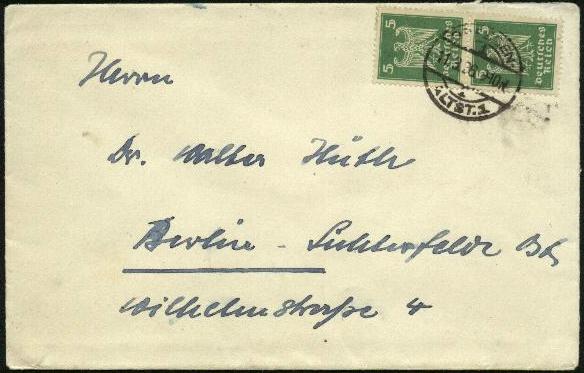 5 5
Deutsches Reich Deutsches Reich
ALTST. 1
Herrn
Dr. Walter Hüth
Berlin - Lichterfelde Ost
Wilhelmstraße 4